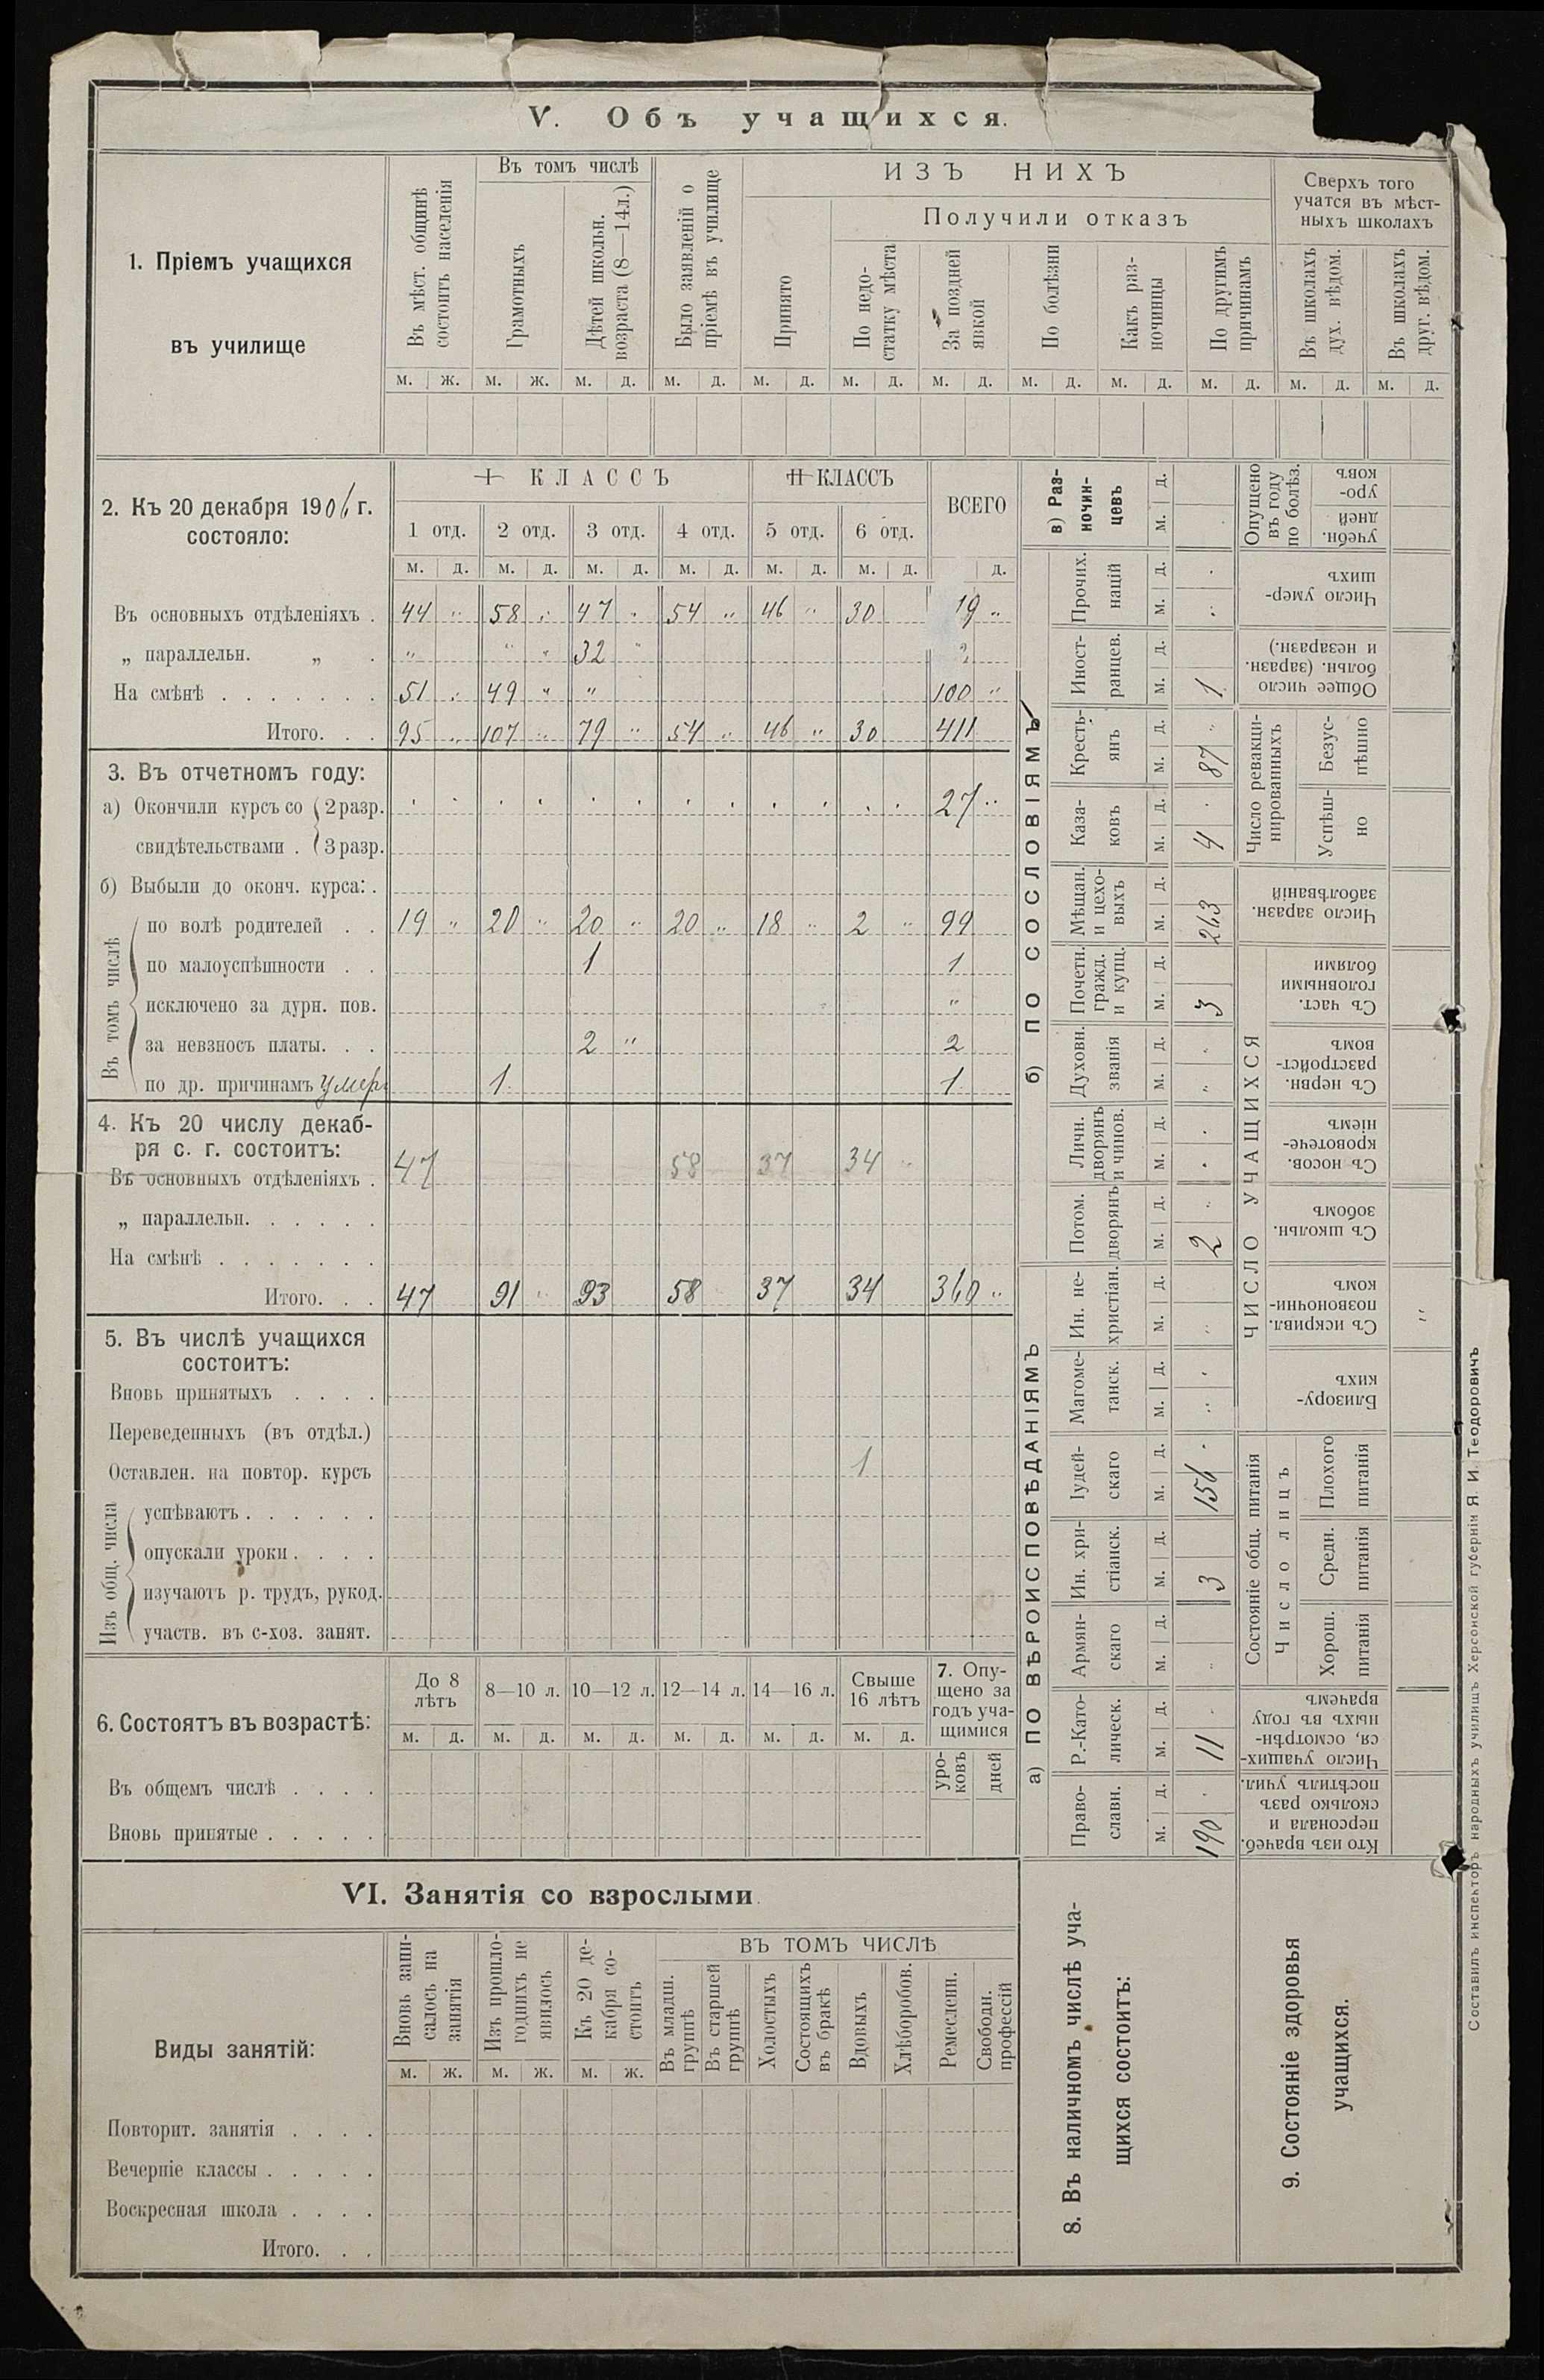 V. Объ учащихся.
1. Пріемъ учащихся
въ училище
Въ мѣст. общинѣ
состоитъ населенія
Въ томъ числѣ
Грамотныхъ
Дѣтей школьн.
возраста (8—14л.)
Было заявленій о
пріемѣ въ училище
ИЗЪ НИХЪ
Принято
Получили отказъ
По недо-
статку мѣста
За поздней
явкой
По болѣзни
Какъ раз-
ночинцы
По другимъ
причинамъ
Сверхъ того
учатся въ мѣст-
ныхъ школахъ
Въ школахъ
дух. вѣдом.
Въ школахъ
друг. вѣдом.
м. ж. м. ж. м. д. м. д. м. д. м. д. м. д. м. д. м. д. м. д. м. д. м. д.
2. Къ 20 декабря 1906 г.
состояло:
I КЛАССЪ II КЛАССЪ ВСЕГО
1 отд. 2 отд. 3 отд. 4 отд. 5 отд. 6 отд.
м. д. м. д. м. д. м. д. м. д. м. д. д.
Въ основныхъ отдѣленіяхъ . 44 „ 58 „ 47 „ 54 „ 46 „ 30 „
„ параллельн. „ . „ „ „ 32 „
На смѣнѣ . . . . . . . 51 „ 49 „ „ 100 „
Итого. . . 95 „ 107 „ 79 „ 54 „ 46 „ 30 411
3. Въ отчетномъ году:
а) Окончили курсъ со 2 разр. 27 „
свидѣтельствами . 3 разр.
б) Выбыли до оконч. курса: .
Въ томъ числѣ
по волѣ родителей . . 19 „ 20 „ 20 „ 20 „ 18 „ 2 „ 99
по малоуспѣшности . . 1 1
исключено за дурн. пов. „
за невзносъ платы. . . 2 „ 2
по др. причинамъ умер. 1 1
4. Къ 20 числу декаб-
ря с. г. состоитъ:
Въ основныхъ отдѣленіяхъ . 47 58 37 34 „
„ параллельн. . . . . .
На смѣнѣ . . . . . . .
Итого. . . 47 91 „ 93 58 37 34 360 „
5. Въ числѣ учащихся
состоитъ:
Вновь принятыхъ . . . .
Переведенныхъ (въ отдѣл.)
Оставлен. на повтор. курсъ 1
Изъ общ. числа
успѣваютъ . . . . . .
опускали уроки . . . .
изучаютъ р. трудъ, рукод.
участв. въ с-хоз. занят.
6. Состоятъ въ возрастѣ:
До 8
лѣтъ
8—10 л. 10—12 л. 12—14 л. 14—16 л.
Свыше
16 лѣтъ
м. д. м. д. м. д. м. д. м. д. м. д.
7. Опу-
щено за
годъ уча-
щимися
уро-
ковъ
дней
Въ общемъ числѣ . . . .
Вновь принятые . . . . .
VI. Занятія со взрослыми.
Виды занятій:
Вновь запи-
салось на
занятія
Изъ прошло-
годнихъ не
явилось
Къ 20 де-
кабря со-
стоитъ
ВЪ ТОМЪ ЧИСЛѢ
Въ младш.
группѣ
Въ старшей
группѣ
Холостыхъ
Состоящихъ
въ бракѣ
Вдовыхъ
Хлѣборобов.
Ремесленн.
Свободн.
профессій
м. ж. м. ж. м. ж.
Повторит. занятія . . . .
Вечерніе классы . . . . .
Воскресная школа . . . .
Итого. . .
8. Въ наличномъ числѣ уча-
щихся состоитъ:
а) ПО ВѢРОИСПОВѢДАНІЯМЪ
Право-
славн.
м. д.
190 „
Р.-Като-
лическ.
м. д.
11 „
Армян-
скаго
м. д.
„
Ин. хри-
стіанск.
м. д.
3
Іудей-
скаго
м. д.
156 „
Магоме-
танск.
м. д.
„ „
Ин. не-
христіан.
м. д.
„
б) ПО СОСЛОВІЯМЪ
Потом.
дворянъ
м. д.
2 „
Личн.
дворянъ
и чинов.
м. д.
„ „
Духовн.
званія
м. д.
„ „
Почетн.
гражд.
и купц.
м. д.
3
Мѣщан.
и цехо-
выхъ
м. д.
263
Каза-
ковъ
м. д.
4 „
Кресть-
янъ
м. д.
87 „
Иност-
ранцев.
м. д.
1
Прочих.
націй
м. д.
„ „
в) Раз-
ночин-
цевъ
м. д.
9. Состояніе здоровья
учащихся.
Кто изъ врачеб.
персонала и
сколько разъ
посѣтилъ учил.
Число учащих-
ся, осмотрѣн-
ныхъ въ году
врачемъ
Состояніе общ. питанія
Число лицъ
Хорош.
питанія
Средн.
питанія
Плохого
питанія
ЧИСЛО УЧАЩИХСЯ
Близору-
кихъ
Съ искривл.
позвоночни-
комъ
„
Съ школьн.
зобомъ
Съ носов.
кровотече-
ніемъ
Съ нервн.
разстройст-
вомъ
Съ част.
головными
болями
Число заразн.
заболѣваній
Число ревакци-
нированныхъ
Успѣш-
но
Безус-
пѣшно
Общее число
больн. (заразн.
и незаразн.)
Число умер-
шихъ
Опущено
въ году
по болѣз.
учебн.
дней
уро-
ковъ
Составилъ инспекторъ народныхъ училищъ Херсонской губерніи Я. И. Теодоровичъ